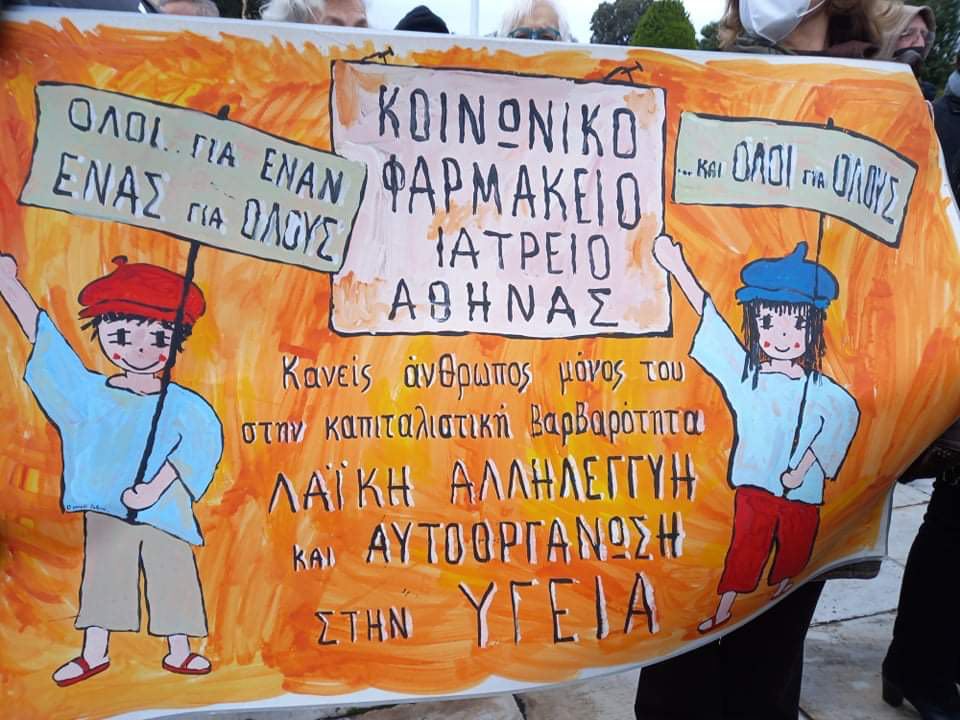 ΟΛΟΙ.. ΓΙΑ ΕΝΑΝ
ΕΝΑΣ ΓΙΑ ΟΛΟΥΣ
ΚΟΙΝΩΝΙΚΟ
ΦΑΡΜΑΚΕΙΟ
ΙΑΤΡΕΙΟ
ΑΘΗΝΑΣ
...ΚΑΙ ΟΛΟΙ ΓΙΑ ΟΛΟΥΣ
Κανείς άνθρωπος μόνος του
στην καπιταλιστική Βαρβαρότητα
ΛΑΪΚΗ ΑΛΛΗΛΕΓΓΥΗ
ΚΑΙ ΑΥΤΟΟΡΓΑΝΩΣΗ
ΣΤΗΝ ΥΓΕΙΑ